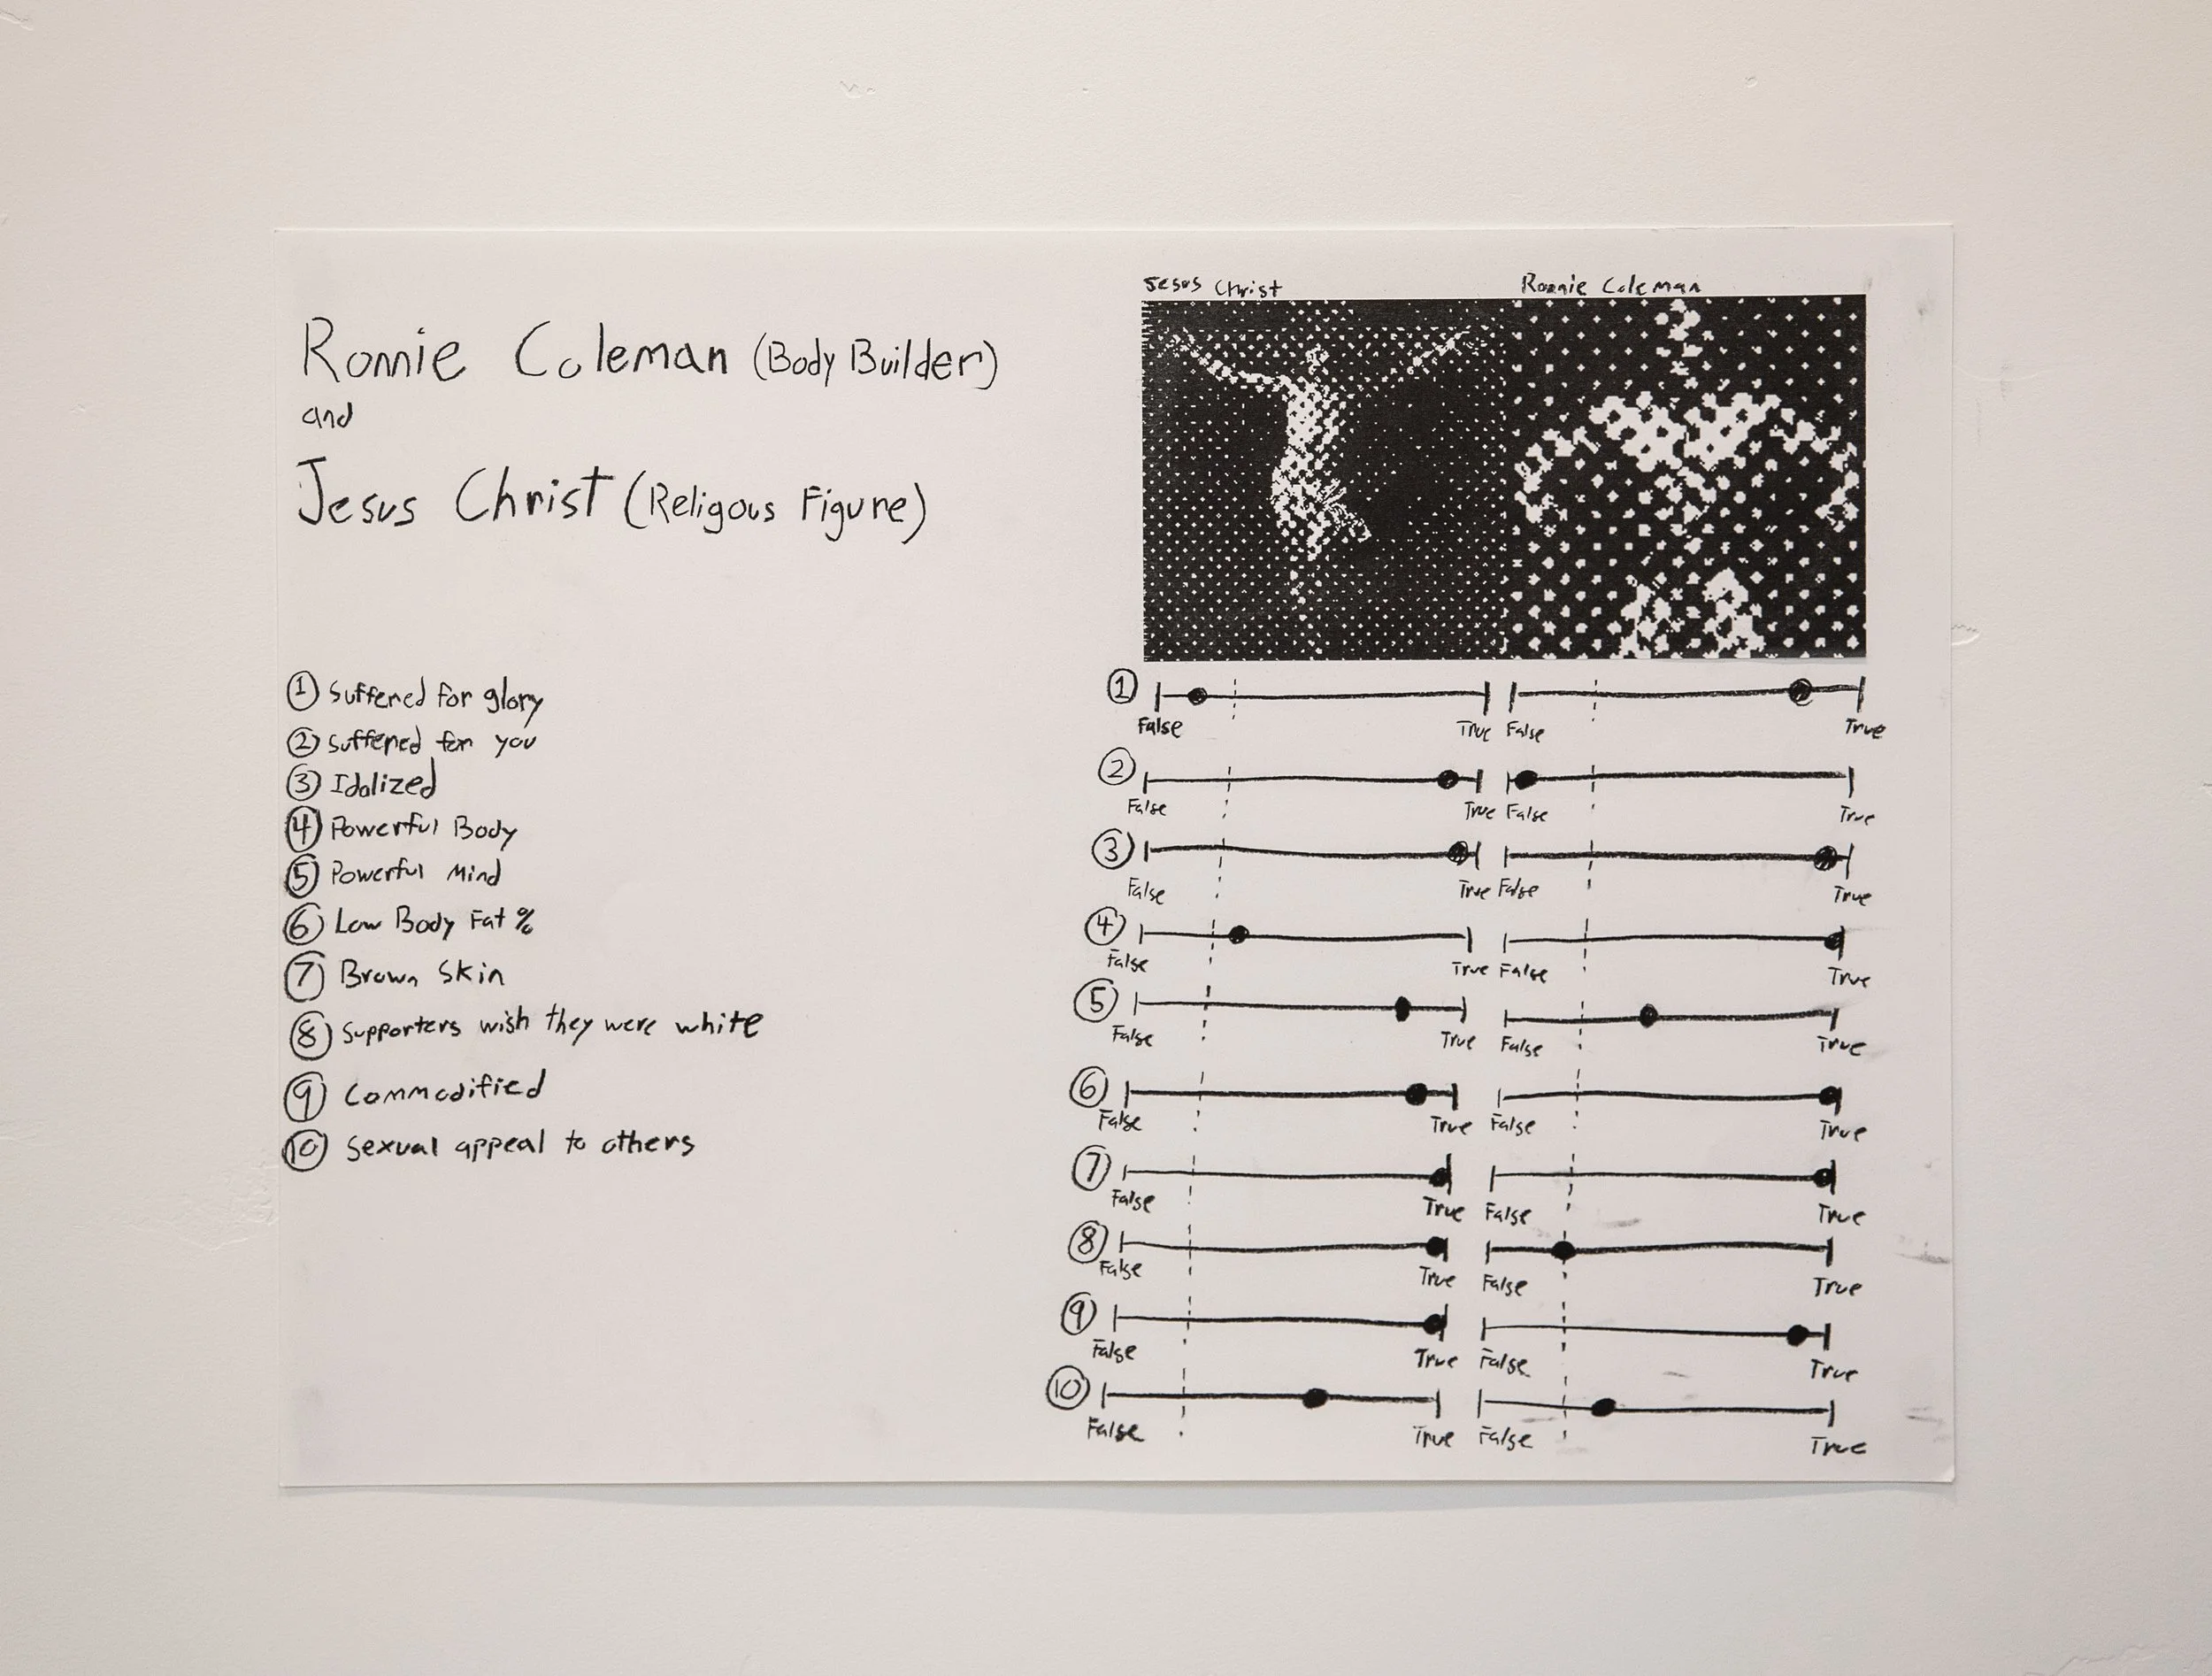 Ronnie Coleman (Body Builder)
and
Jesus Christ (Religous Figure)
① Suffered for glory
② Suffered for you
③ Idolized
④ Powerful Body
⑤ Powerful Mind
⑥ Low Body Fat %
⑦ Brown Skin
⑧ Supporters wish they were white
⑨ Commodified
⑩ Sexual appeal to others
Jesus Christ Ronnie Coleman
①
False True False True
②
False True False True
③
False True False True
④
False True False True
⑤
False True False True
⑥
False True False True
⑦
False True False True
⑧
False True False True
⑨
False True False True
⑩
False True False True